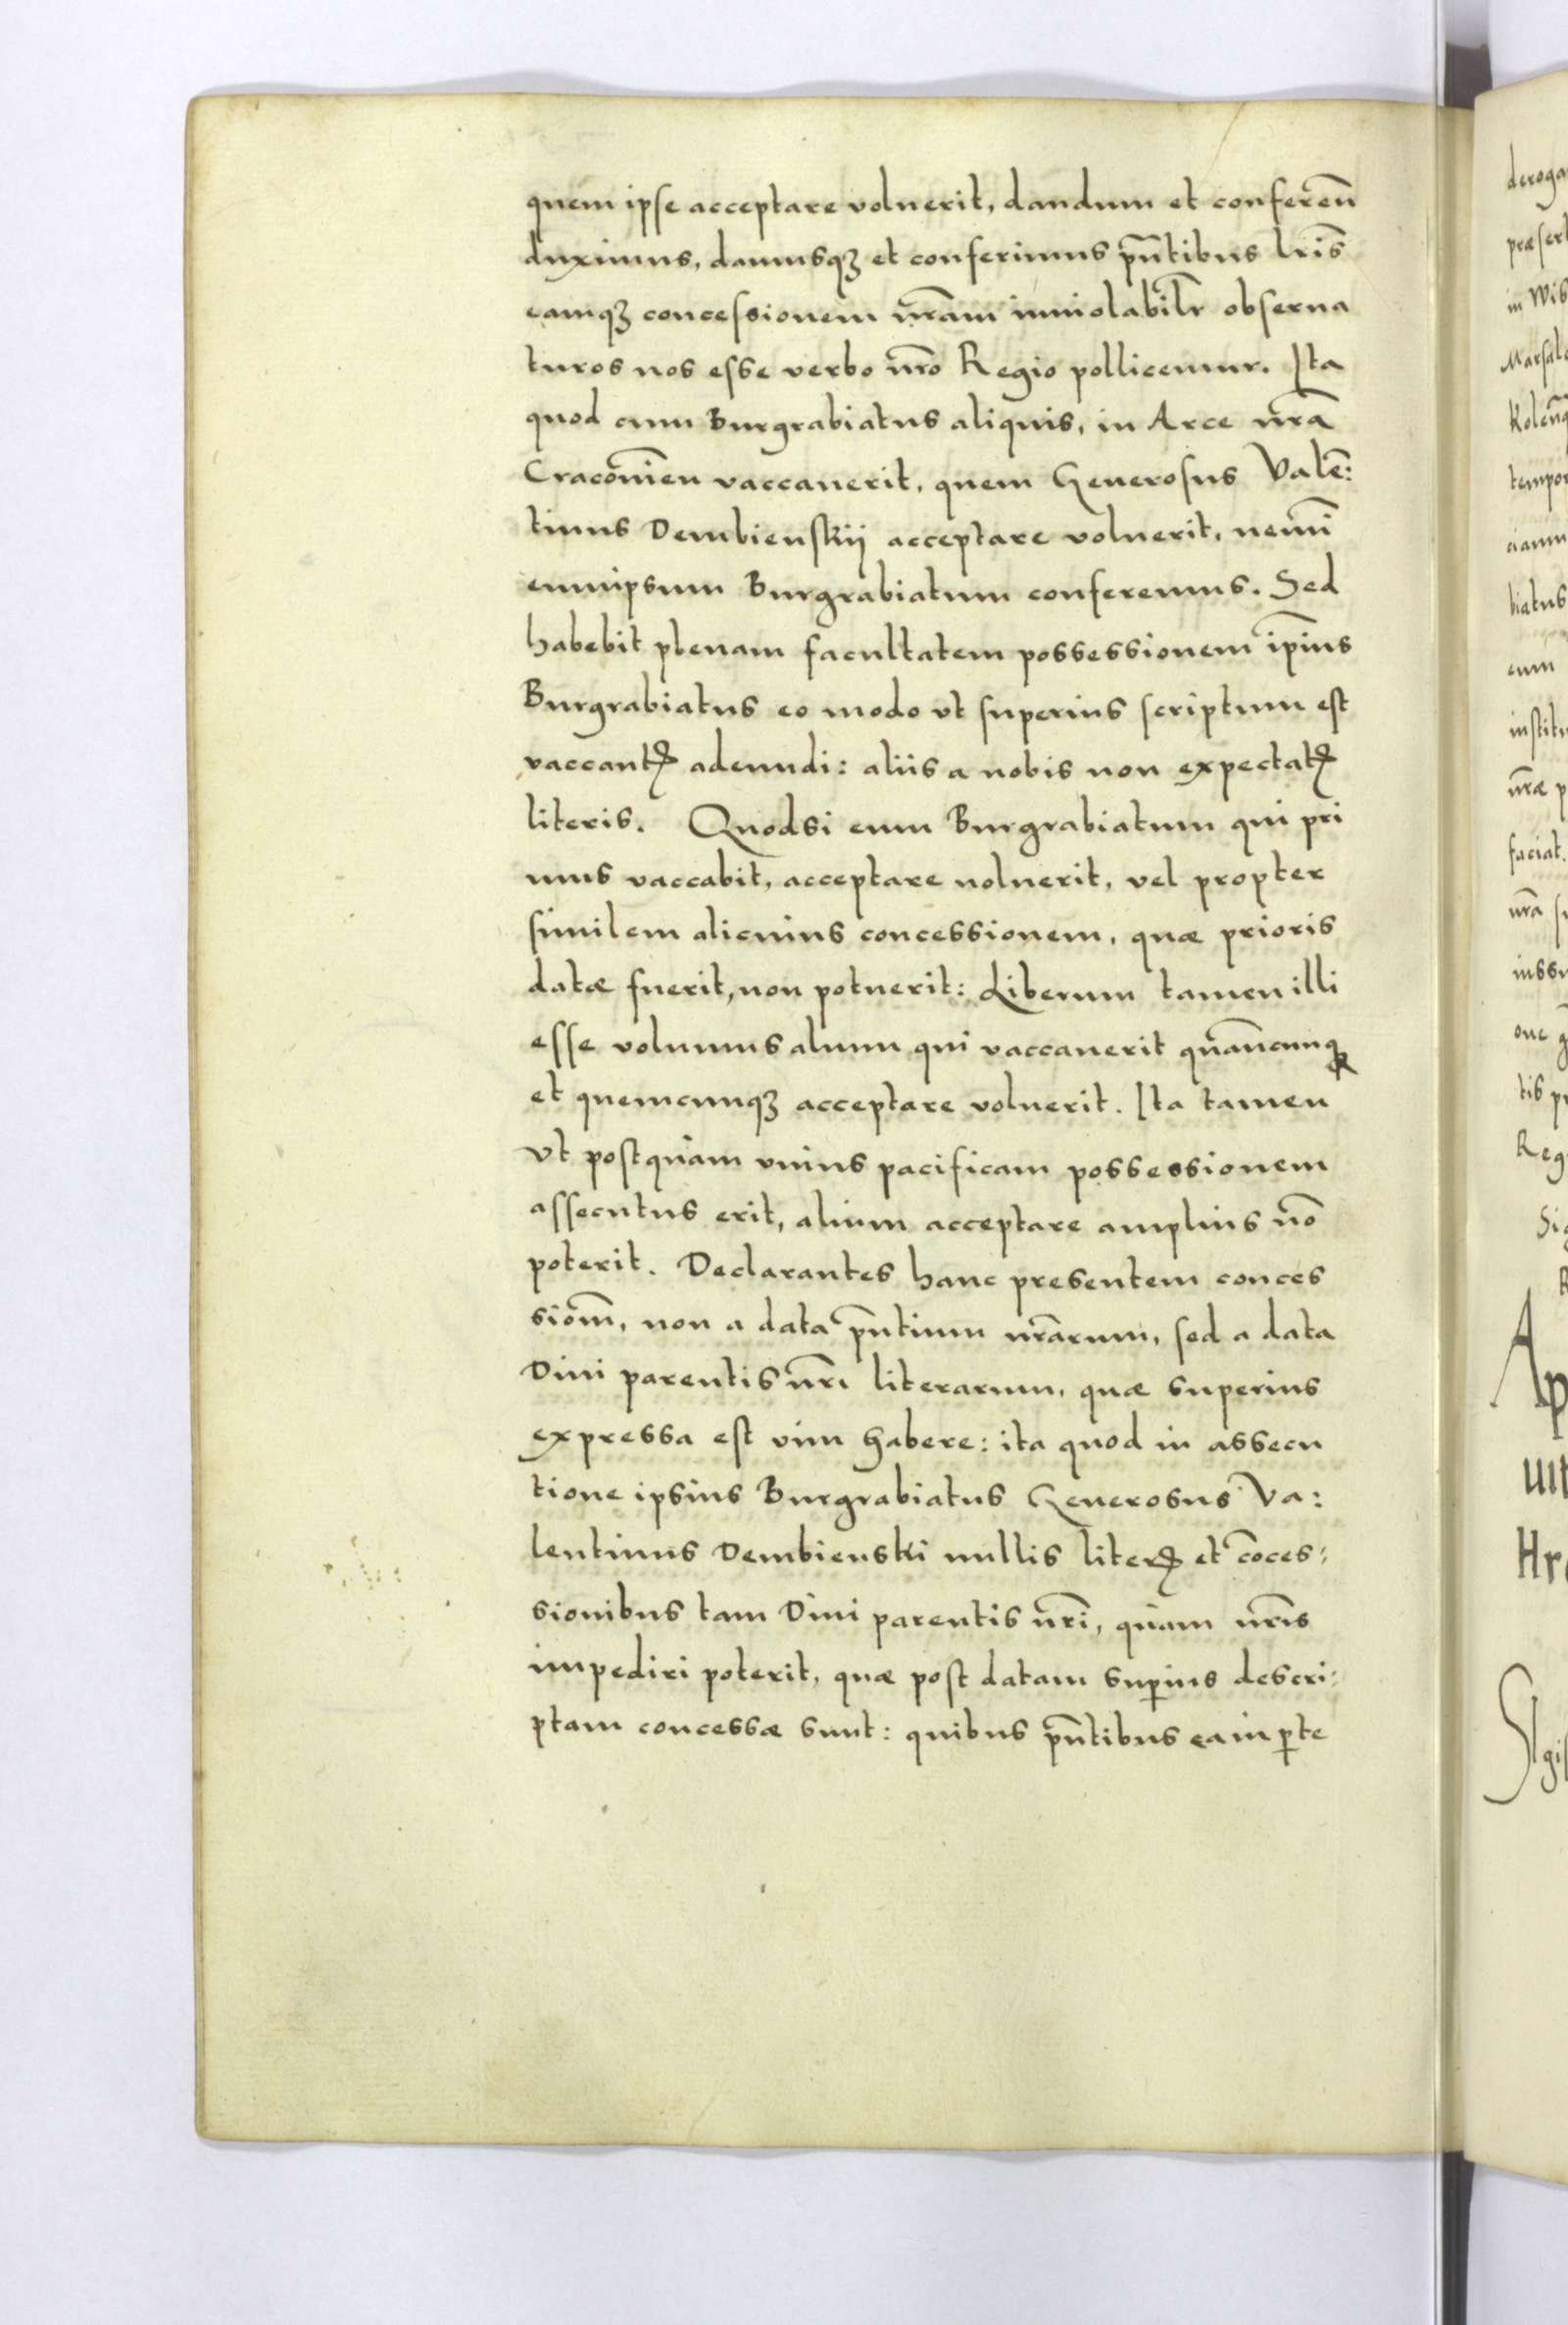 quem ipse acceptare voluerit, dandum et conferen̄
duximus, damusqꝫ et conferimus pn̄tibus lr̄is
eamqꝫ concessionem nr̄am inuiolabilr̄ obserua
turos nos esse verbo nr̄o Regio pollicemur. Ita
quod cum Burgrabiatus aliquis, in Arce nr̄a
Cracouien̄ vaccauerit, quem Generosus Valē:
tinus Dembienskij acceptare voluerit, nemī
eumipsum Burgrabiatum conferemus. Sed
habebit plenam facultatem possessionem ip̄ius
Burgrabiatus eo modo vt superius scriptum est
vaccantꝭ adeundi: aliis a nobis non expectatꝭ
literis. Quodsi eum Burgrabiatum qui pri
mus vaccabit, acceptare noluerit, vel propter
similem alicuius concessionem, quæ prioris
datæ fuerit, non potuerit: Liberum tamen illi
esse volumus alium qui vaccauerit quan̄cunqꝫ
et quemcunqꝫ acceptare voluerit. Ita tamen
vt postquam vnius pacificam possessionem
assecutus erit, alium acceptare amplius nō
poterit. Declarantes hanc presentem conces
siom̄, non a data pn̄tium nr̄arum, sed a data
Diui parentis nr̄i literarum, quæ superius
expressa est vim habere: ita quod in assecu
tione ipsius Burgrabiatus Generosus Va:
lentinus Dembienski nullis literꝭ et cōces:
sionibus tam Diui parentis nr̄i, quam nr̄is
impediri poterit, quæ post datam sup̄ius descri:
ptam concessæ sunt: quibus pn̄tibus ea in ꝑte
deroga
præser
in Wis
Marsal
Kolen̄
tempor
biatus
eum
institu
nr̄æ p
faciat.
nr̄a su
iussu
one
tis pr
Reg
Sig
R
Ap
uit
Hr
Sigis